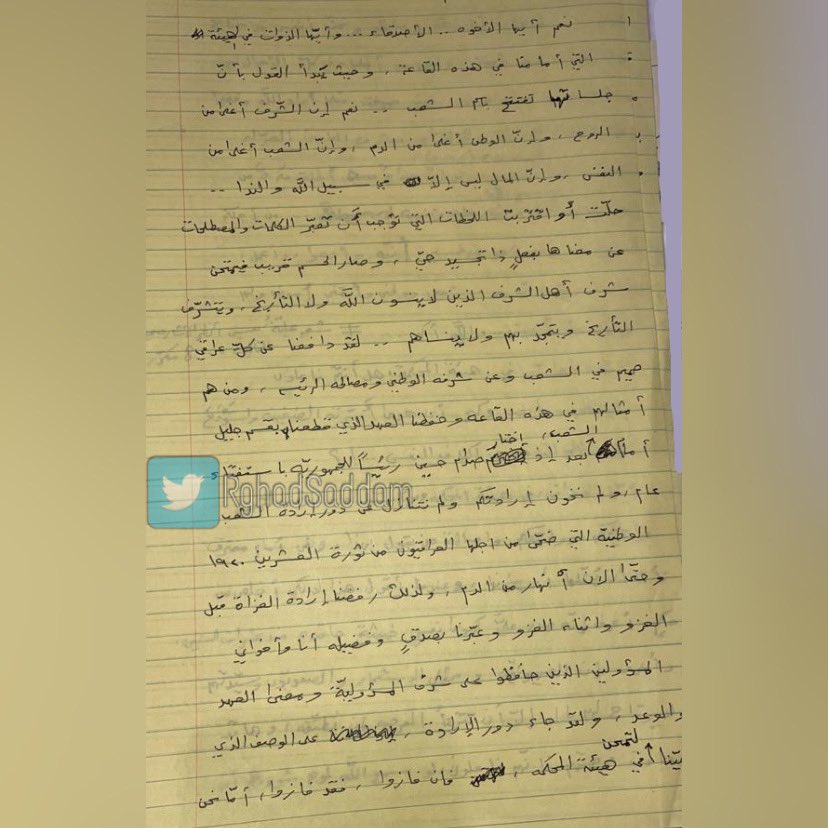 نعم أيها الأخوه .. الأصدقاء ... وأيّها الذوات في هيئة
التي أمامنا في هذه القاعة ، وحيث يبدأ القول بأنّ
جلساتها تفتتح باسم الشعب .. نعم إن الشّرف أغلى من
الروح ، وإنّ الوطن أغلى من الدم ، وإنّ الشعب أغلى من
النفس ، وإنّ المال ليس إلّا في سبيل الله والندا ..
حلّت أو اقتربت اللحظات التي توجب أن تعبّر الكلمات والمصطلحات
عن معناها بفعلٍ ذا تجسيد حيّ ، وصار الحسم قريب فيمتحن
شرف أهل الشرف الذين لا ينسون الله ولا التأريخ ، ويتشرّف
التأريخ ويتمجّد بهم ولا ينساهم .. لقد دافعنا عن كلّ عراقي
صميم في الشعب وعن شرفه الوطني ومصالحه الرئيسه ، ومن هم
أمثالهم في هذه القاعه وحفظنا العهد الذي قطعناه بقسم جليل
الشعب ، إختار
أمام بعد إذ صدام حسين رئيساً للجمهوريّه باستفتاء
RaghadSaddam
عام ، ولم نخون إرادتكم ولم نتنازل عن دور إرادة الشعب
الوطنية التي ضحّى من اجلها العراقيون من ثورة العشرين ١٩٢٠
وحتّى الان أنهار من الدم ، ولذلك رفضنا إرادة الغزاة قبل
الغزو واثناء الغزو وعبّرنا بصدقٍ وفضيله أنا وأخواني
المسؤولين الذين حافظوا على شرف المسؤوليّة ومعنى العهد
والوعد ، ولقد جاء دور الإرادة ، على الوصف الذي
لتمتحن
بيّنا في هيئة المحكمه ، فان فازوا ، فقد فازوا ، أمّا نحن